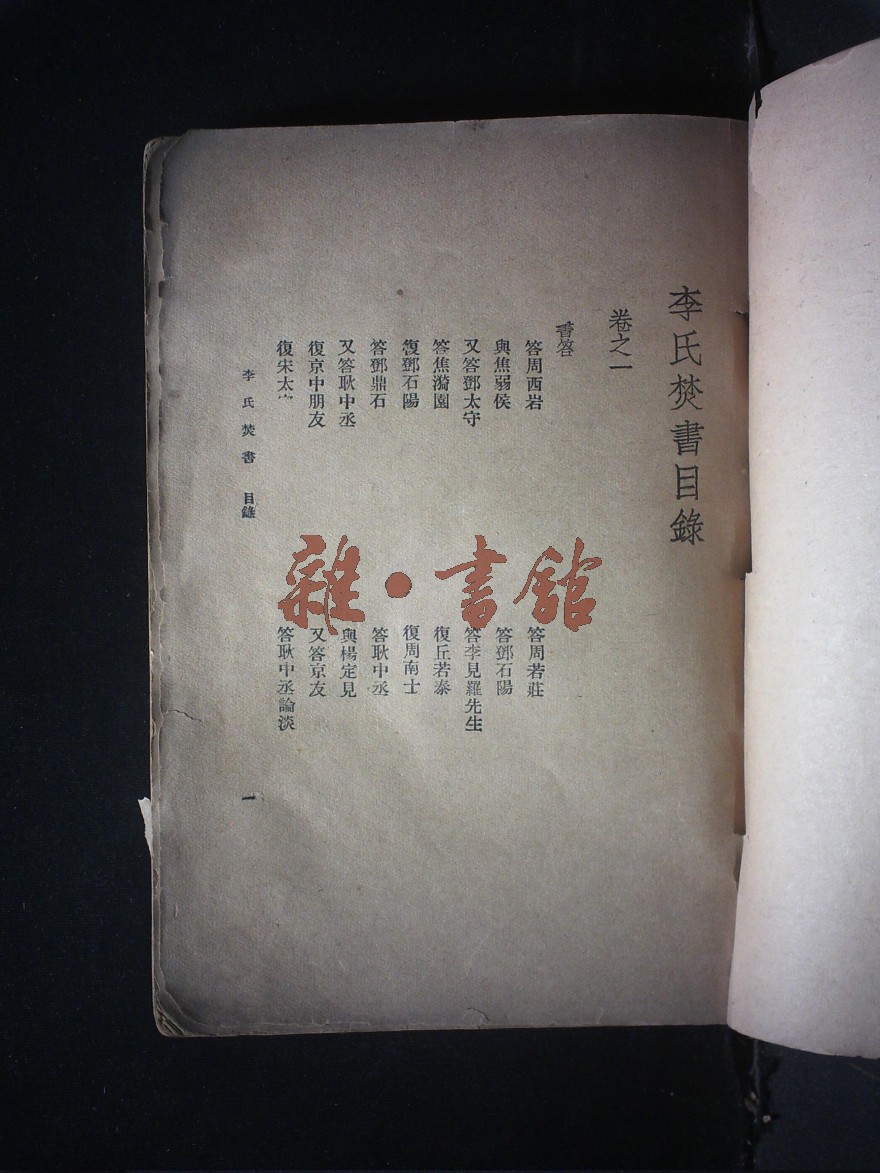 李氏焚書目錄
卷之一
書答
答周西岩
答周若莊
與焦弱侯
答鄧石陽
又答鄧太守
答李見羅先生
答焦漪園
復丘若泰
復鄧石陽
復周南士
答鄧鼎石
答耿中丞
又答耿中丞
與楊定見
復京中朋友
又答京友
復宋太
答耿中丞論淡
李氏焚書 目錄
一
雜·書館